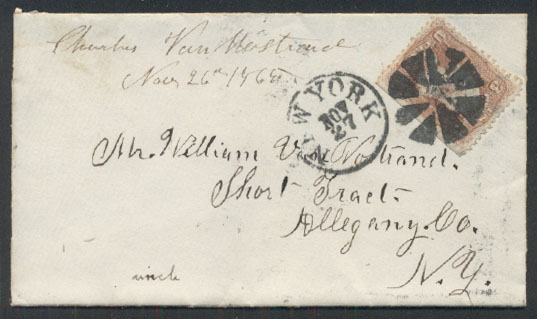 Charles Van Nostrand
Nov 26th 1868
NEW YORK
NOV
27
Mr. William Van Nostrand.
Short Tract.
Allegany Co.
N.Y.
uncle